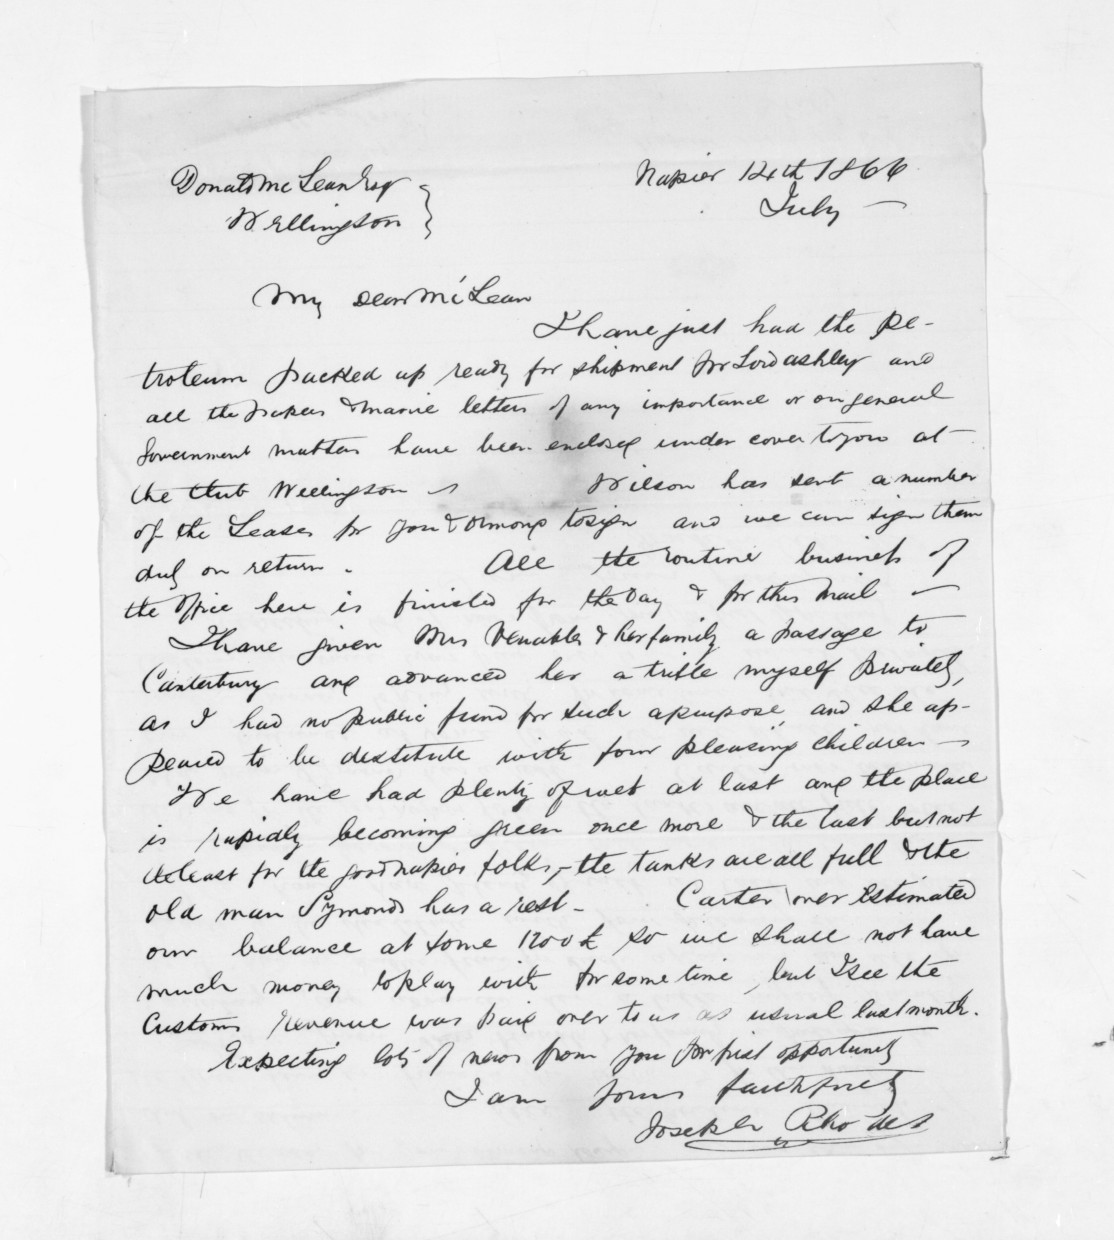 Donald McLean Esq
Wellington
Napier 12th 1866
July
My dear McLean
I have just had the Pe-
troleum packed up ready for shipment for Lord Ashley and
all the papers & letters of any importance or on general
Government matters have been enclosed under cover to you at
the Club Wellington
Wilson has sent a number
of the Leases for you & Ormond to sign and we can sign them
duly on return.
All the routine business of
the Office here is finished for the day & for this mail
I have given Mrs Venables & her family a passage to
Canterbury and advanced her a trifle myself privately,
as I had no public fund for such a purpose, and she ap-
peared to be destitute with four pleasing children
We have had plenty of wet at last and the place
is rapidly becoming green once more & the last but not
the least for the good Napier folks, - the tanks are all full & the
old man Symonds has a rest -
Carter over Estimated
our balance at some 1200£ so we shall not have
much money to play with for some time, but I see the
Customs revenue was paid over to us as usual last month.
Expecting lots of news from you for first opportunity
I am Yours faithfully
Joseph Rhodes